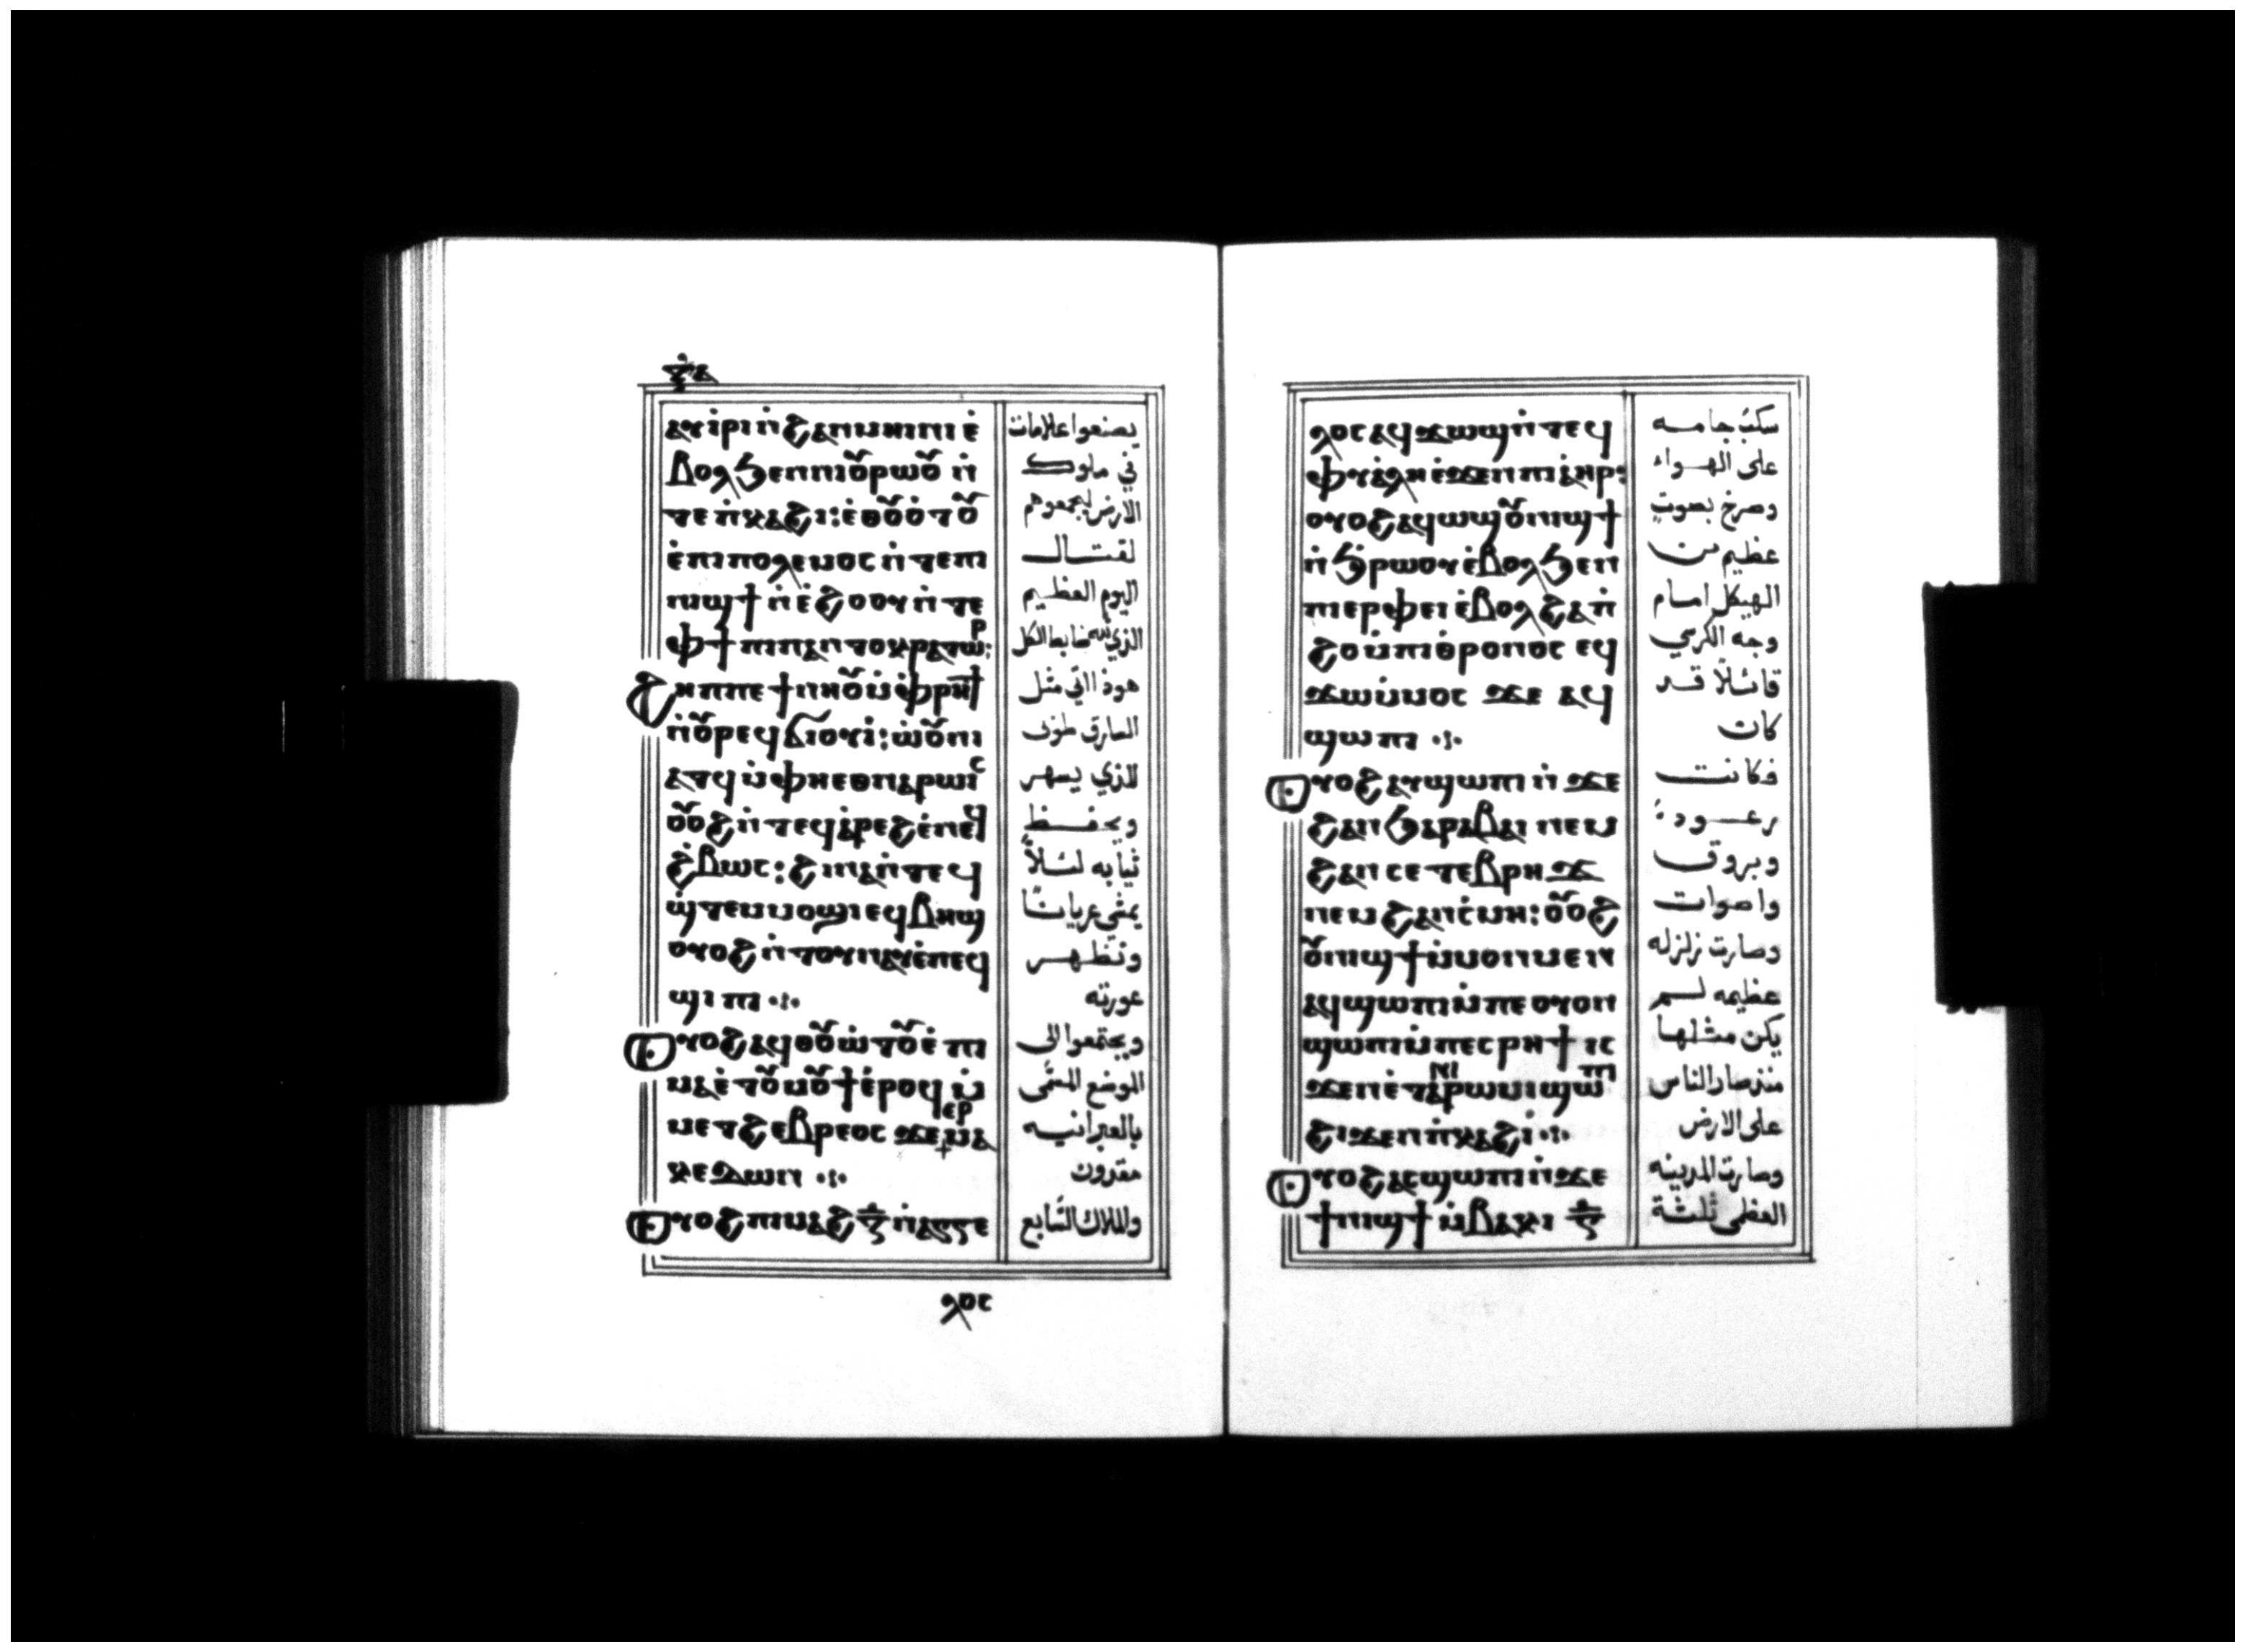 ⲝ̅ⲁ
ⲉⲩⲓ̇ⲣⲓ ⲛ̇ϩⲁⲛⲙⲏⲓⲛⲓ ⲉ̇
ⲃⲟⲗϧⲉⲛⲛⲓⲟⲩⲣⲱⲟⲩ ⲛ̇
ⲧⲉⲡ̇ⲕⲁϩⲓ: ⲉ̇ⲑⲟⲩⲟ̇ⲧⲟⲩ
ⲉ̇ⲡⲓⲡⲟⲗⲉⲙⲟⲥ ⲛ̇ⲧⲉⲡⲓ
ⲛⲓϣϯ ⲛ̇ⲉ̇ϩⲟⲟⲩ ⲛ̇ⲧⲉ
ⲫϯ ⲡⲓⲡⲁⲛⲧⲟⲕⲣⲁⲧⲱⲣ:
ϩⲏⲡⲡⲉ ϯⲛⲏⲟⲩ ⲙ̇ⲫⲣⲏϯ
ⲛ̇ⲟⲩⲣⲉϥϭⲓⲟⲩⲓ̇: ⲱ̇ⲟⲩⲛⲓ
ⲁⲧϥ ⲙ̇ⲫⲏⲉⲑⲛⲁⲣⲱⲓⲥ
ⲟⲩⲟϩ ⲛ̇ⲧⲉϥⲁ̇ⲣⲉϩ ⲉ̇ⲛⲉϥ
ϩ̇ⲃⲱⲥ: ϩⲓⲛⲁ ⲛ̇ⲧⲉϥ
ϣ̇ⲧⲉⲙⲙⲟϣⲓ ⲉϥⲃⲏϣ
ⲟⲩⲟϩ ⲛ̇ⲧⲟⲩⲛⲁⲩ ⲉ̇ⲡⲉϥ
ϣⲓⲡⲓ ⁘
ⲟⲩⲟϩ ⲁϥⲑⲟⲩⲱ̇ⲧⲟⲩ ⲉ̇ⲡⲓ
ⲙⲁ ⲉ̇ⲧⲟⲩⲙⲟⲩϯ ⲉ̇ⲣⲟϥ ⲙ̇
ⲙⲉⲧϩⲉⲃⲣⲉⲟⲥ ϫⲉ ⲉⲣⲙⲁ
ⲕⲉⲇⲱⲛ ⁘
ⲟⲩⲟϩ ⲡⲓⲙⲁϩ ⲍ̅ ⲛ̇ⲁⲅⲅⲉ
يصنعوا علامات
في ملوك
الارض ليجمعوهم
لقتال
اليوم العظيم
الذي لله ضابط الكل
هوذا اتي مثل
السارق طوبى
للذي يسهر
ويحفظ
ثيابه لئلاً
يمشي عرياناً
وتظهر
عورته
ويجتمعوا الى
الموضع المسمى
بالعبرانيه
مقدون
والملاك السابع
ⲗⲟⲥ
ⲗⲟⲥ ⲁϥϫⲱϣ ⲛ̇ⲧⲉϥ
ⲫⲩⲁ̇ⲗⲏ ⲉ̇ϫⲉⲛⲡⲓⲁ̇ⲏⲣ:
ⲟⲩⲟϩ ⲁϥⲱϣ ⲟⲩⲛⲓϣϯ
ⲛ̇ϧ̇ⲣⲱⲟⲩ ⲉ̇ⲃⲟⲗϧⲉⲛ
ⲡⲓⲉⲣⲫⲉⲓ ⲉ̇ⲃⲟⲗϩⲁ ⲡ̇
ϩⲟ ⲙ̇ⲡⲓⲑ̇ⲣⲟⲛⲟⲥ ⲉϥ
ϫⲱⲙ̇ⲙⲟⲥ ϫⲉ ⲁϥ
ϣⲱⲡⲓ ⁘
ⲟⲩⲟϩ ⲁⲩϣⲱⲡⲓ ⲛ̇ϫⲉ
ϩⲁⲛϧⲁⲣⲁⲃⲁⲓ ⲛⲉⲙ
ϩⲁⲛⲥⲉⲧⲉⲃⲣⲏϫ
ⲛⲉⲙ ϩⲁⲛⲥ̇ⲙⲏ: ⲟⲩⲟϩ
ⲟⲩⲛⲓϣϯ ⲙ̇ⲙⲟⲛⲙⲉⲛ
ⲁϥϣⲱⲡⲓ ⲙ̇ⲡⲉ ⲟⲩⲟⲛ
ϣⲱⲡⲓ ⲙ̇ⲡⲉⲥⲣⲏϯ ⲓⲥ
ϫⲉⲛ ⲉ̇ⲧⲁ ⲛⲓⲣⲱⲙⲓ ϣⲱⲡⲓ
ϩⲓϫⲉⲛ ⲡ̇ⲕⲁϩⲓ ⁘
ⲟⲩⲟϩ ⲁⲥϣⲱⲡⲓ ⲛ̇ϫⲉ
ϯⲛⲓϣϯ ⲙ̇ⲃⲁⲕⲓ ⲅ̅
سكب جامه
على الهواء
وصرخ بصوتٍ
عظيم من
الهيكل امام
وجه الكرسي
قائلاً قد
كان
فكانت
رعود
وبروق
واصوات
وصارت زلزله
عظيمه لم
يكن مثلها
منذ صار الناس
على الارض
وصارت المدينه
العظمى ثلثة